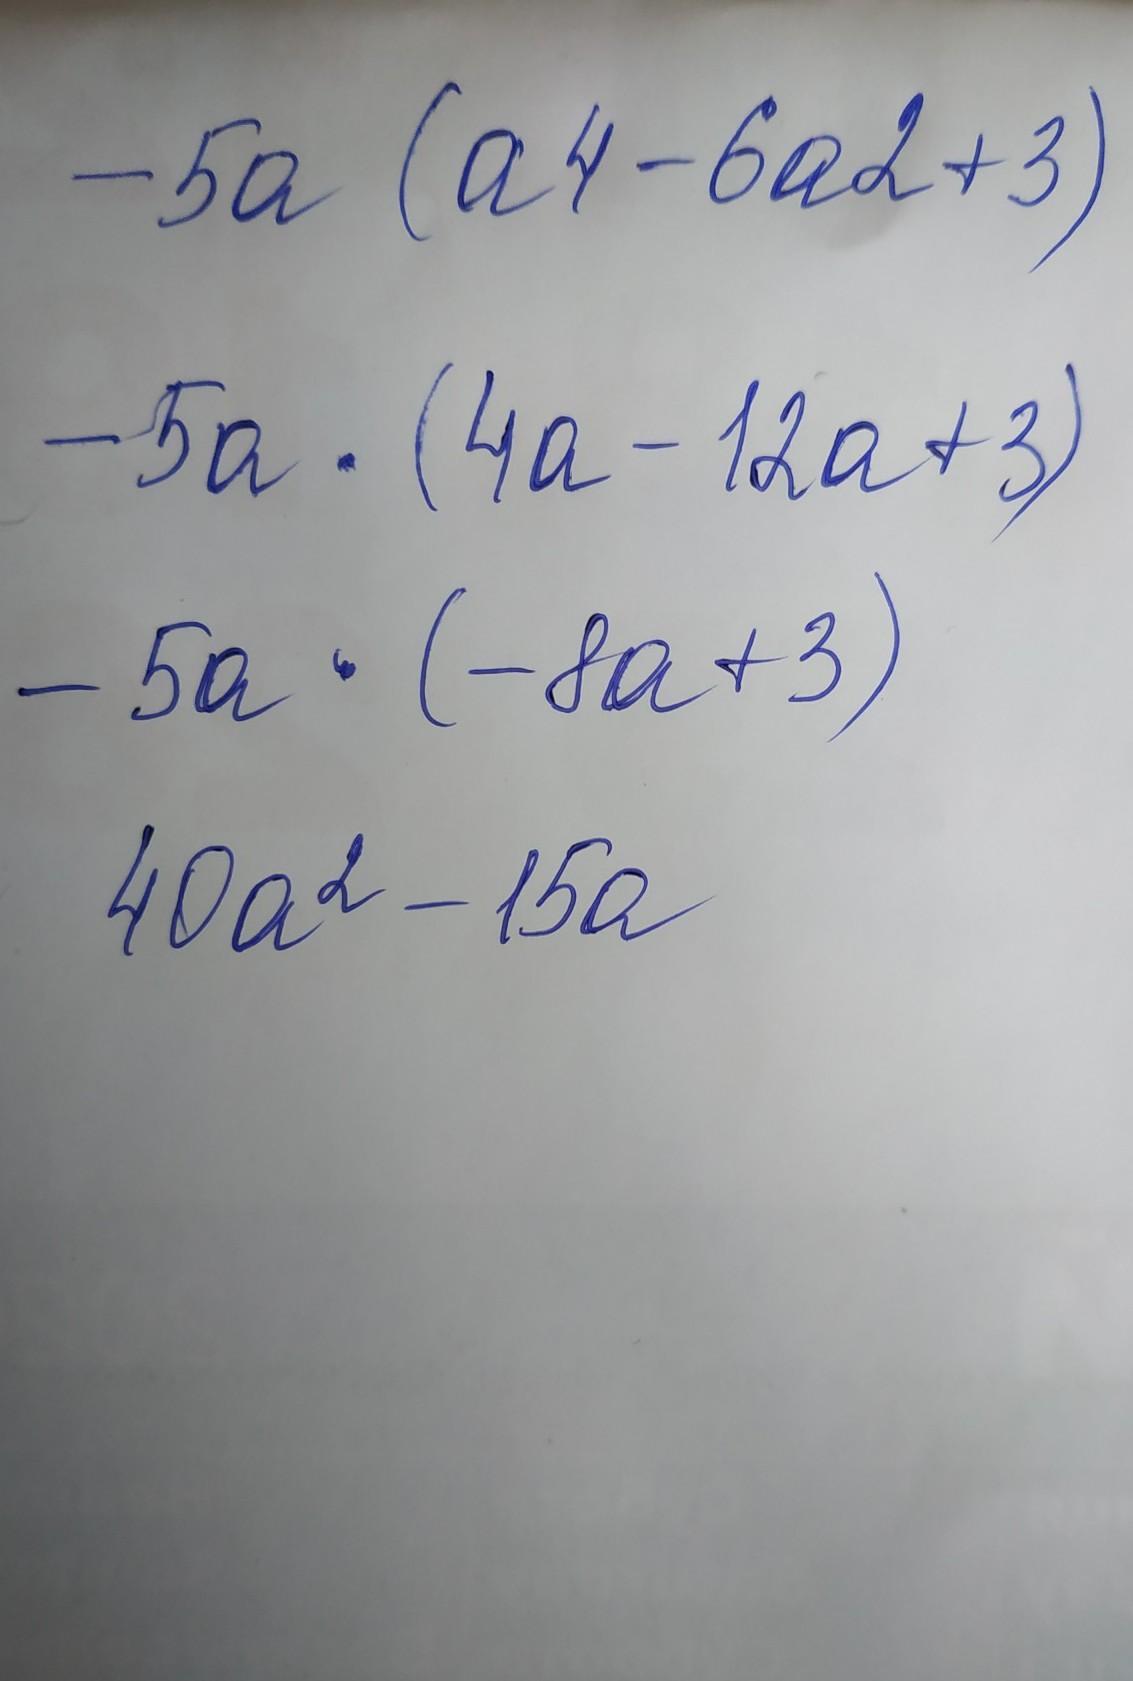 -5a (a4-6a2+3)
-5a · (4a-12a+3)
-5a · (-8a+3)
40a²-15a